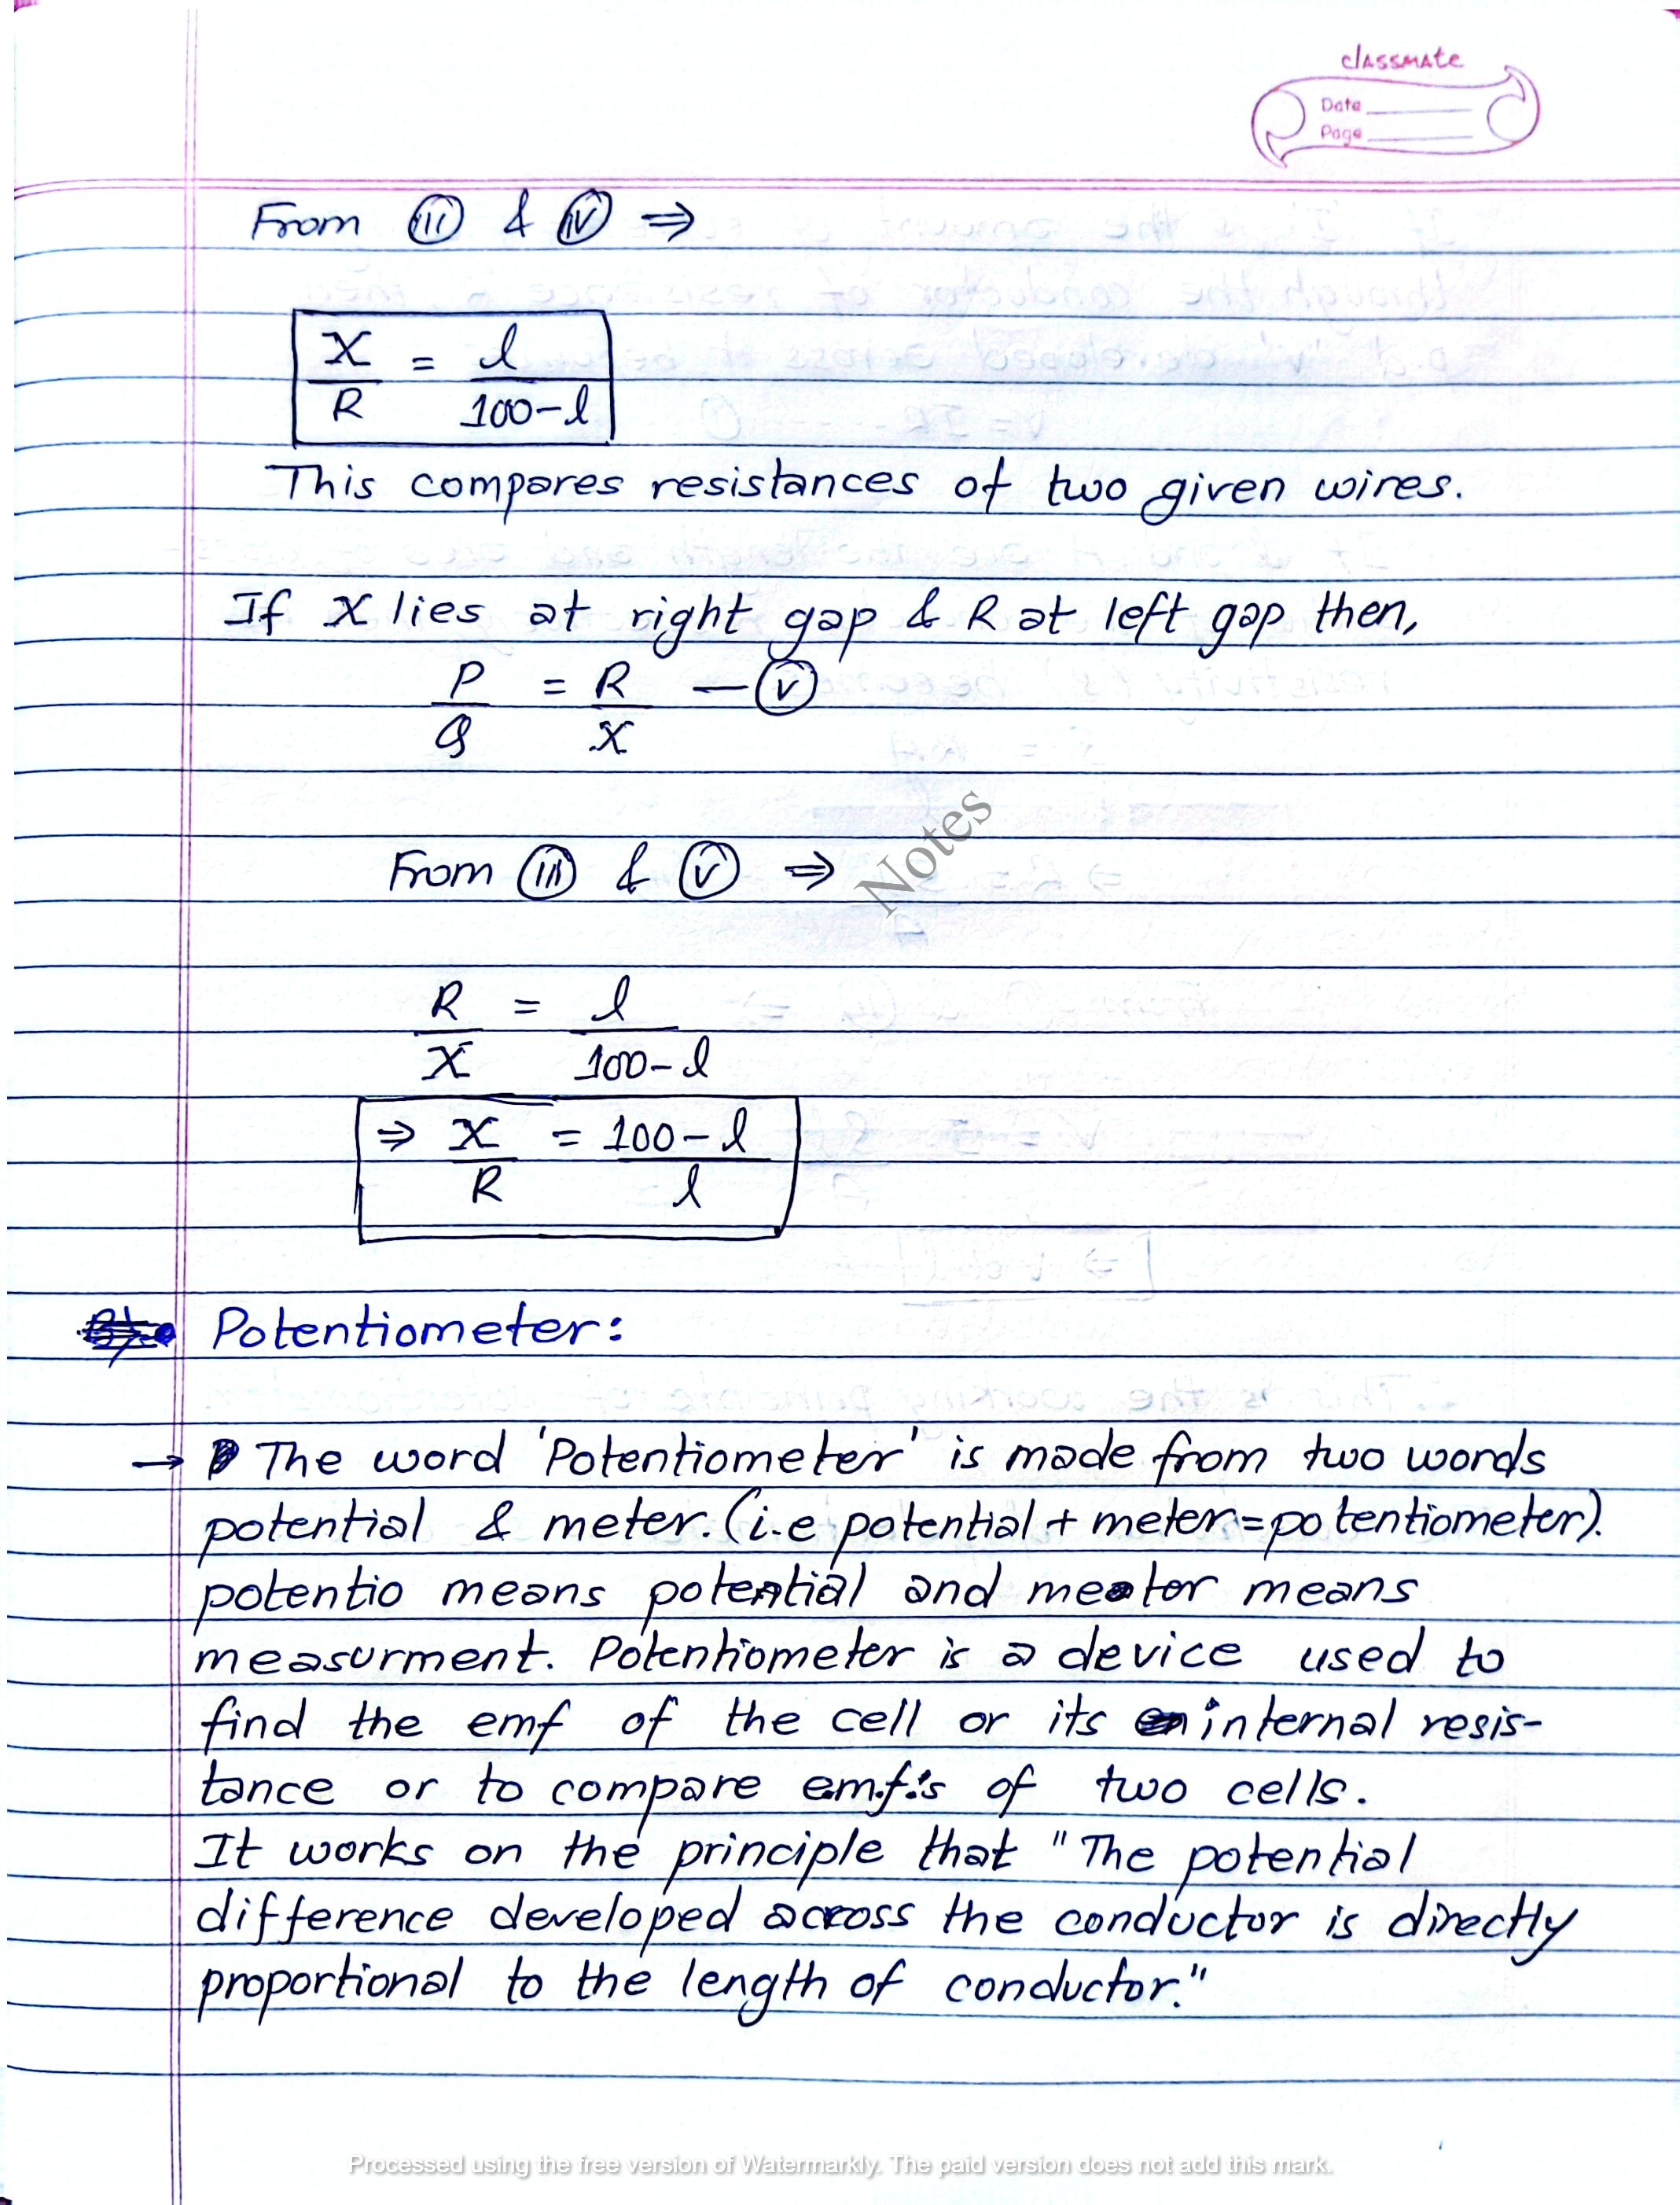 classmate
Date
Page
From (iii) & (iv) ⇒
X/R = l/100-l
This compares resistances of two given wires.
If X lies at right gap & R at left gap then,
P/Q = R/X — (v)
From (iii) & (v) ⇒
Notes
R/X = l/100-l
⇒ X/R = 100-l/l
Potentiometer:
→ The word 'Potentiometer' is made from two words
potential & meter. (i.e potential + meter = potentiometer).
potentio means potential and meter means
measurment. Potentiometer is a device used to
find the emf of the cell or its internal resis-
tance or to compare e.m.f.'s of two cells.
It works on the principle that "The potential
difference developed across the conductor is directly
proportional to the length of conductor."
Processed using the free version of Watermarkly. The paid version does not add this mark.